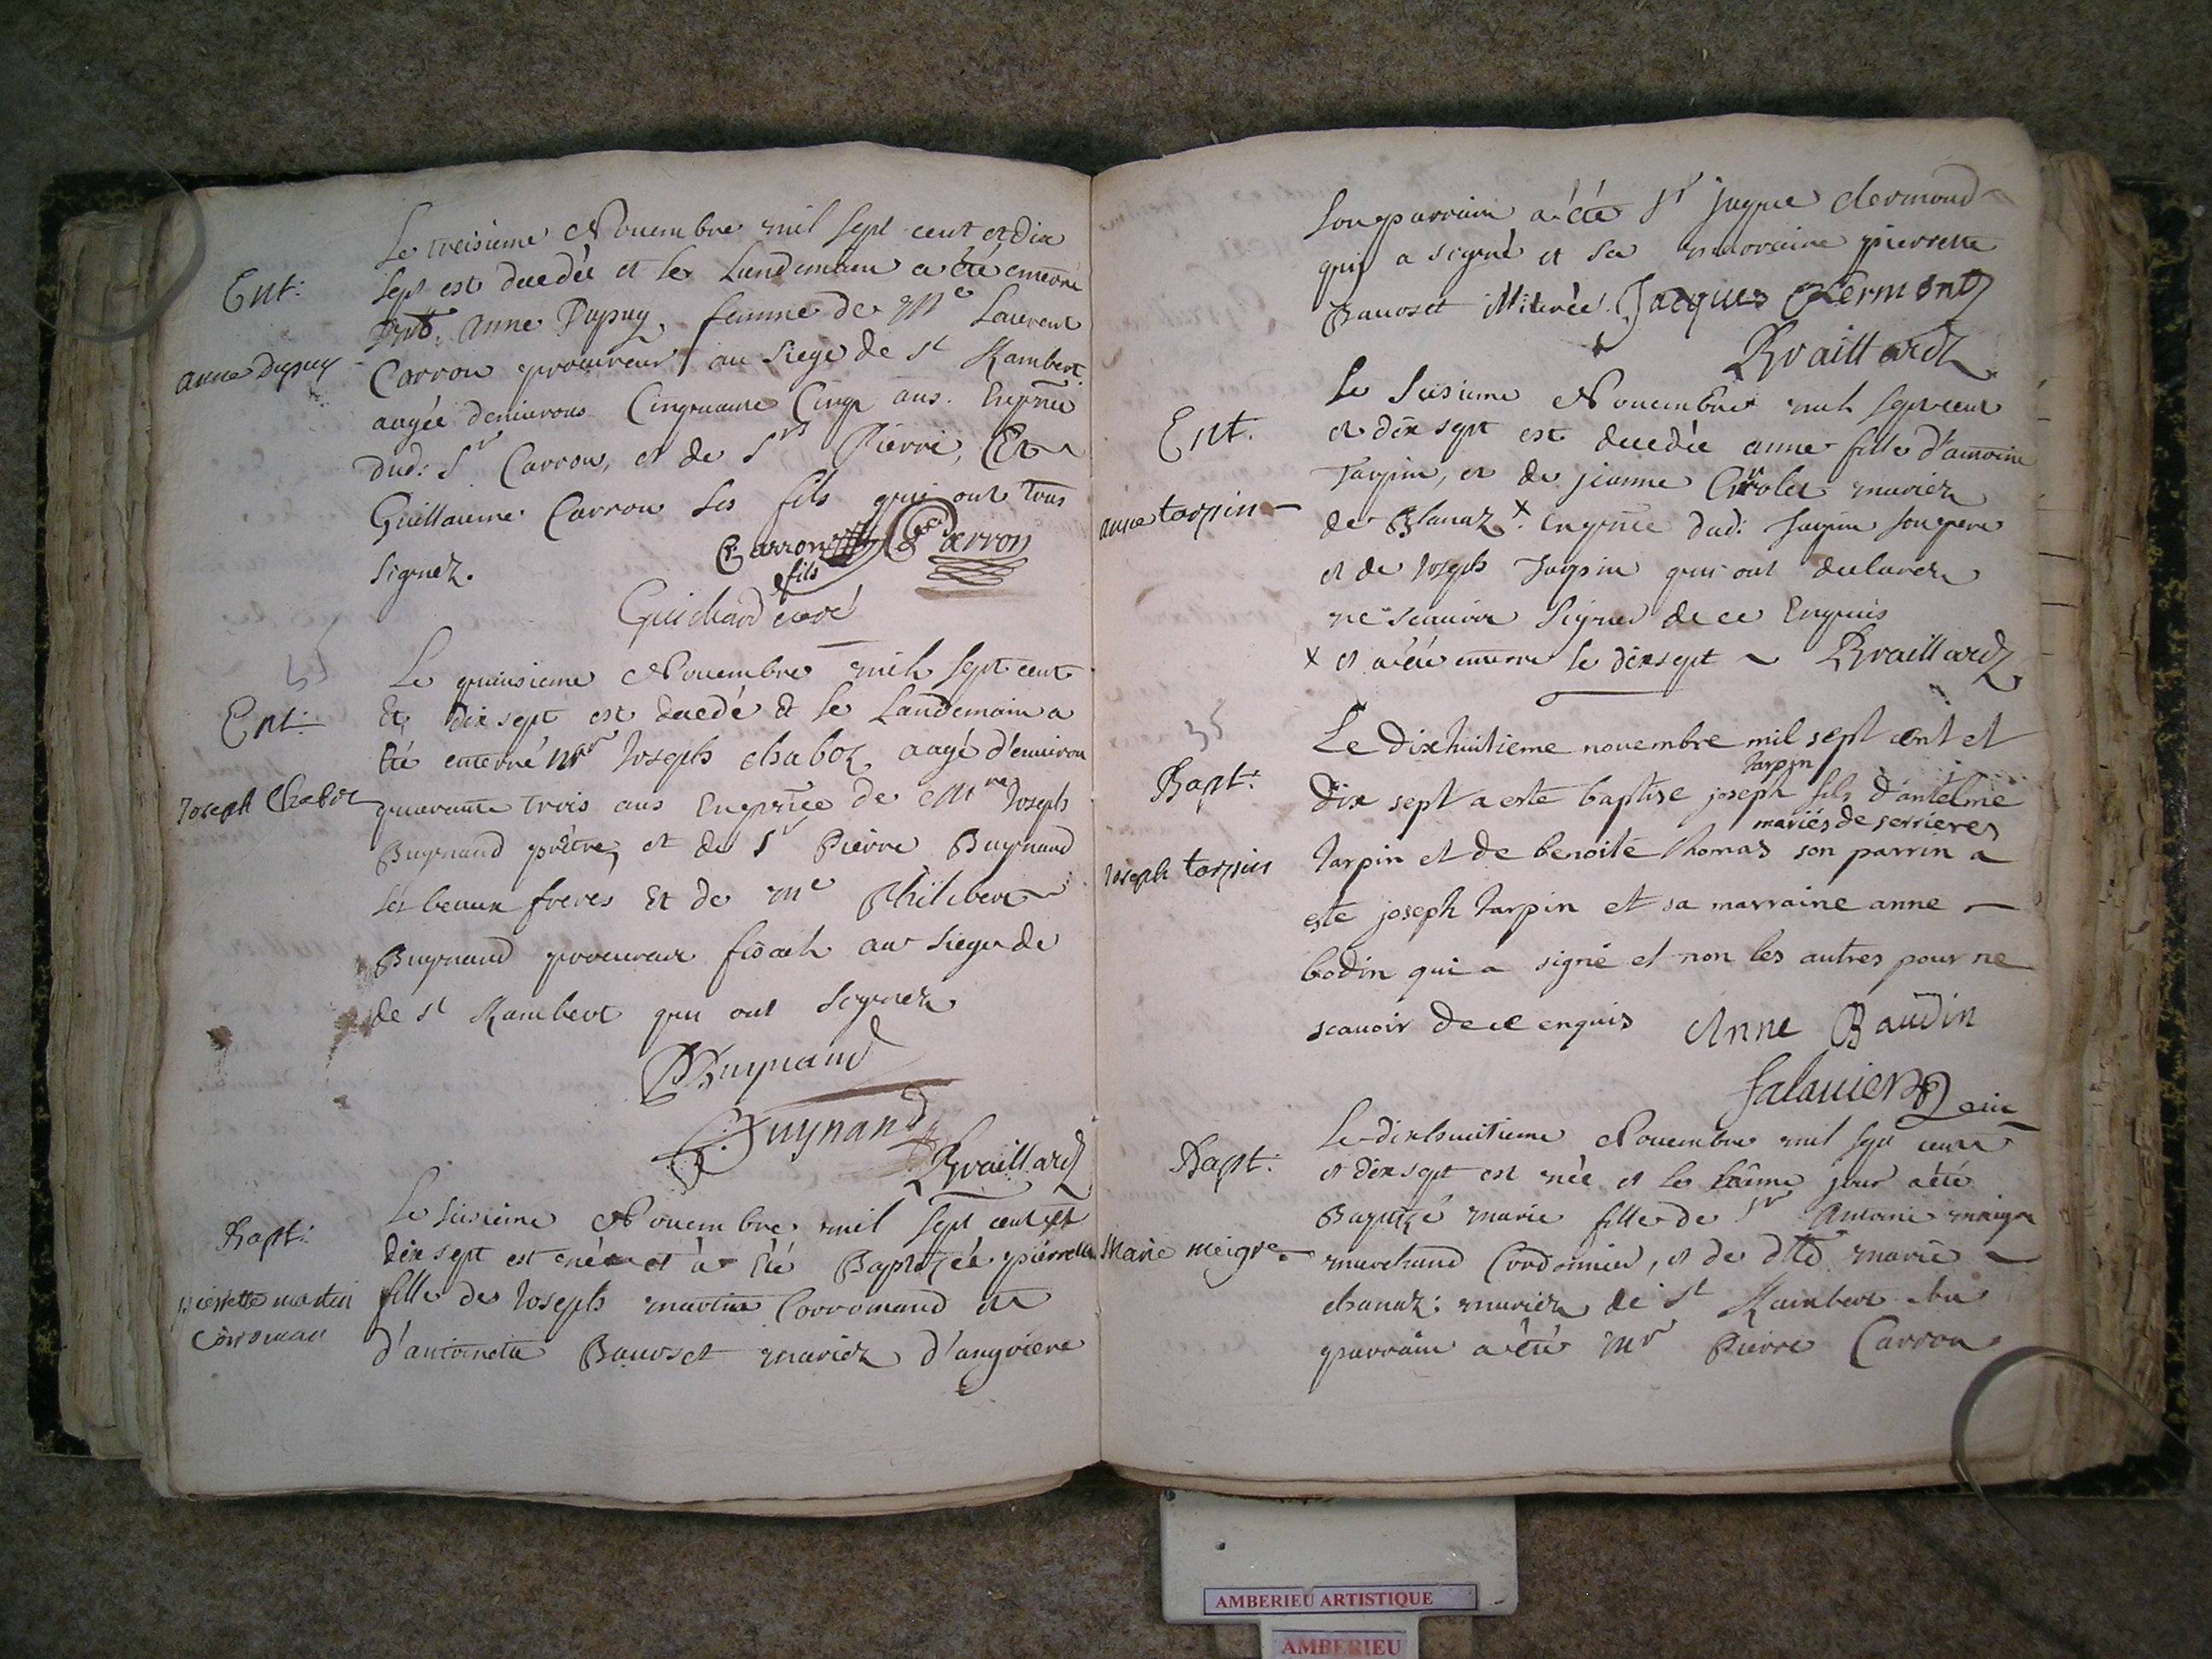 Ent:
anne Dupuy
Le treisieme Nouembre mil sept cent et dix
sept est decedée et le Landemain a été enterré
anne Dupuy, femme de Me Laurent
Carron procureur au siege de st Rambert
aagée denuirons Cinquante Cinq ans. En pnce
dud: Sr Carron, et de Srs Pierre, Et
Guillaume Carron ses fils qui ont tous
signez.
Carron
fils
Carron
Guichard curé
35
Ent:
Joseph Chaboz
Le quinsieme Nouembre mil sept cent
Et dix sept est decedé et le Landemain a
été enterré mr Joseph chaboz, aagé d'enuiron
quarante trois ans En pnce de Mre Joseph
Buynand prêtre, et de Sr Pierre Buynand
ses beaux freres Et de Me Philibert
Buynand procureur fiscal au siege de
de st Rambert qui ont signez
Buynand
Buynand
Braillard
Bapt:
pierrette martin
Corroman
Le sesieme Nouembre mil sept cent et
dix sept est née et a été Baptizée pierrette
fille de Joseph martin Corromand et
d'antoinette Bauoset mariez d'angriere
son parrain a été sr jaque clermond
qui a signé et sa marraine pierrette
Bauoset illiterée. Jacques Clermont
Braillard
Ent.
anne torpin
Le sesieme Nouembre mil sept cent
et dix sept est decedée anne fille d'antoine
Tarpin, et de jeanne mariez
de Blanaz x. En pnce dud: Tarpin son pere
et de Joseph Tarpin qui ont declarez
ne scauoir signer de ce Enquis
x et a été enterré le dixsept Braillard
35
Bapt:
Joseph torpin
Le dixhuitieme nouembre mil sept cent et
tarpin
dix sept a este baptise joseph fils d'antelme
mariés de serrieres
tarpin et de benoite thomas son parrin a
este joseph tarpin et sa marraine anne
bodin qui a signé et non les autres pour ne
scauoir de ce enquis Anne Baudin
falauier
Bapt:
Marie meigre
Le dixhuitieme Nouembre mil sept cent
et dix sept est née et le même jour a été
Baptizé marie fille de Sr Antoine maigre
marchand Cordonnier, et de dlle marie
chanaz: mariez de st Rambert
parrain a été Mr Pierre Carron
AMBERIEU ARTISTIQUE
AMBERIEU